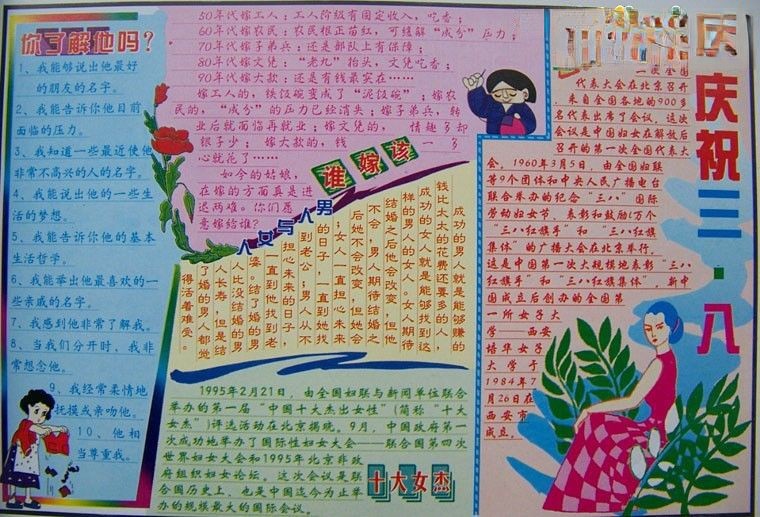 你了解他吗？
1、我能够说出他最好
的朋友的名字。
2、我能告诉你他目前
面临的压力。
3、我知道一些最近使他
非常不高兴的人的名字。
4、我能说出他的一些生
活的梦想。
5、我能告诉你他的基本
生活哲学。
6、我能举出他最喜欢的一
些亲戚的名字。
7、我感到他非常了解我。
8、当我们分开时，我非
常想念他。
9、我经常柔情地
抚摸或亲吻他。
10、他相
当尊重我。
50年代嫁工人：工人阶级有固定收入，吃香；
60年代嫁农民：农民根正苗红，可缓解“成分”压力；
70年代嫁子弟兵：还是部队上有保障；
80年代嫁文凭：“老九”抬头，文凭吃香；
90年代嫁大款：还是有钱最实在……
嫁工人的，铁饭碗变成了“泥饭碗”；嫁农
民的，“成分”的压力已经消失；嫁子弟兵，转
业后就面临再就业；嫁文凭的，情趣多却
银子少；嫁大款的，钱一多
心就花了……
如今的姑娘，
在嫁的方面真是进
退两难。你们愿
意嫁结谁？
谁嫁该
男人与女人
成功的男人就是能够赚的
钱比太太的花费还要多的人，
成功的女人就是能够找到这
样的男人的女人。女人期待
结婚之后他会改变，但他
不会，男人期待结婚之
后她不会改变，但她
会；女人一直担心未来
的日子，一直到她找
到老公；男人从不
担心未来的日子，
一直到他找到老
婆。结了婚的男
人比没结婚的男
人长寿，但是结
了婚的男人都觉
得活着难受。
1995年2月21日，由全国妇联与新闻单位联合
举办的第一届“中国十大杰出女性”（简称“十大
女杰”）评选活动在北京揭晓。9月，中国政府第一
次成功地举办了国际性妇女大会——联合国第四次
世界妇女大会和1995年北京非政
府组织妇女论坛。这次会议是联
合国历史上，也是中国迄今为止举
办的规模最大的国际会议。
十大女杰
庆祝三·八
代表大会在北京召开
，来自全国各地的900多
名代表出席了会议，这次
会议是中国妇女在解放后
召开的第一次全国代表大
会。1960年3月5日，由全国妇联
等9个团体和中央人民广播电台
联合举办的纪念“三八”国际
劳动妇女节、表彰和鼓励1万个
“三八红旗手”和“三八红旗
集体”的广播大会在北京举行。
这是中国第一次大规模地表彰“三八
红旗手”和“三八红旗集体”。新中
国成立后创办的全国第
一所女子大
学——西安
培华女子
大学于
1984年7
月26日在
西安市
成立。